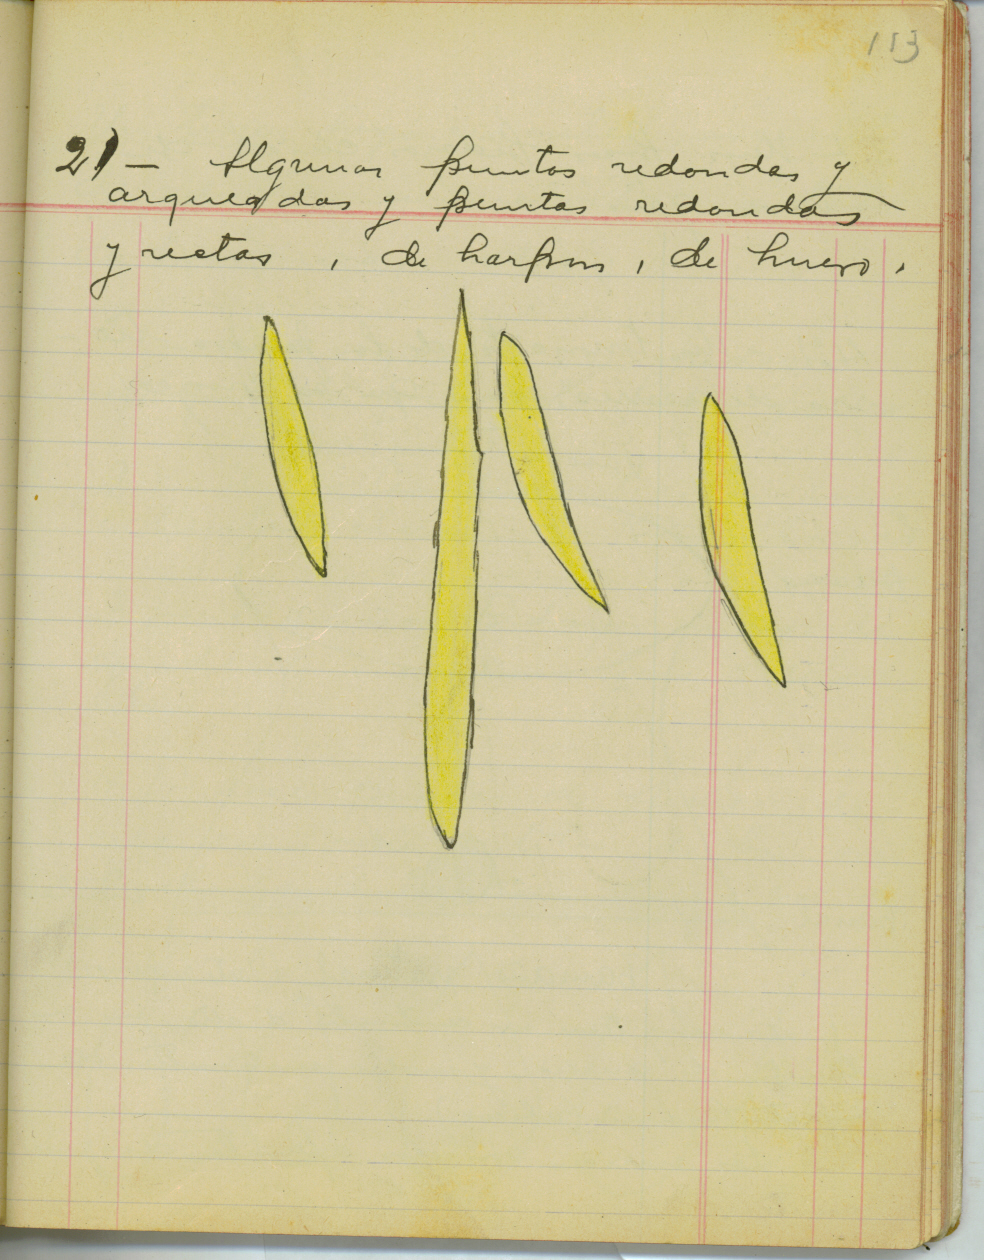 113
21 — Algunas puntas redondas y
arqueadas y puntas redondas
y rectas, de harpon, de hueso.